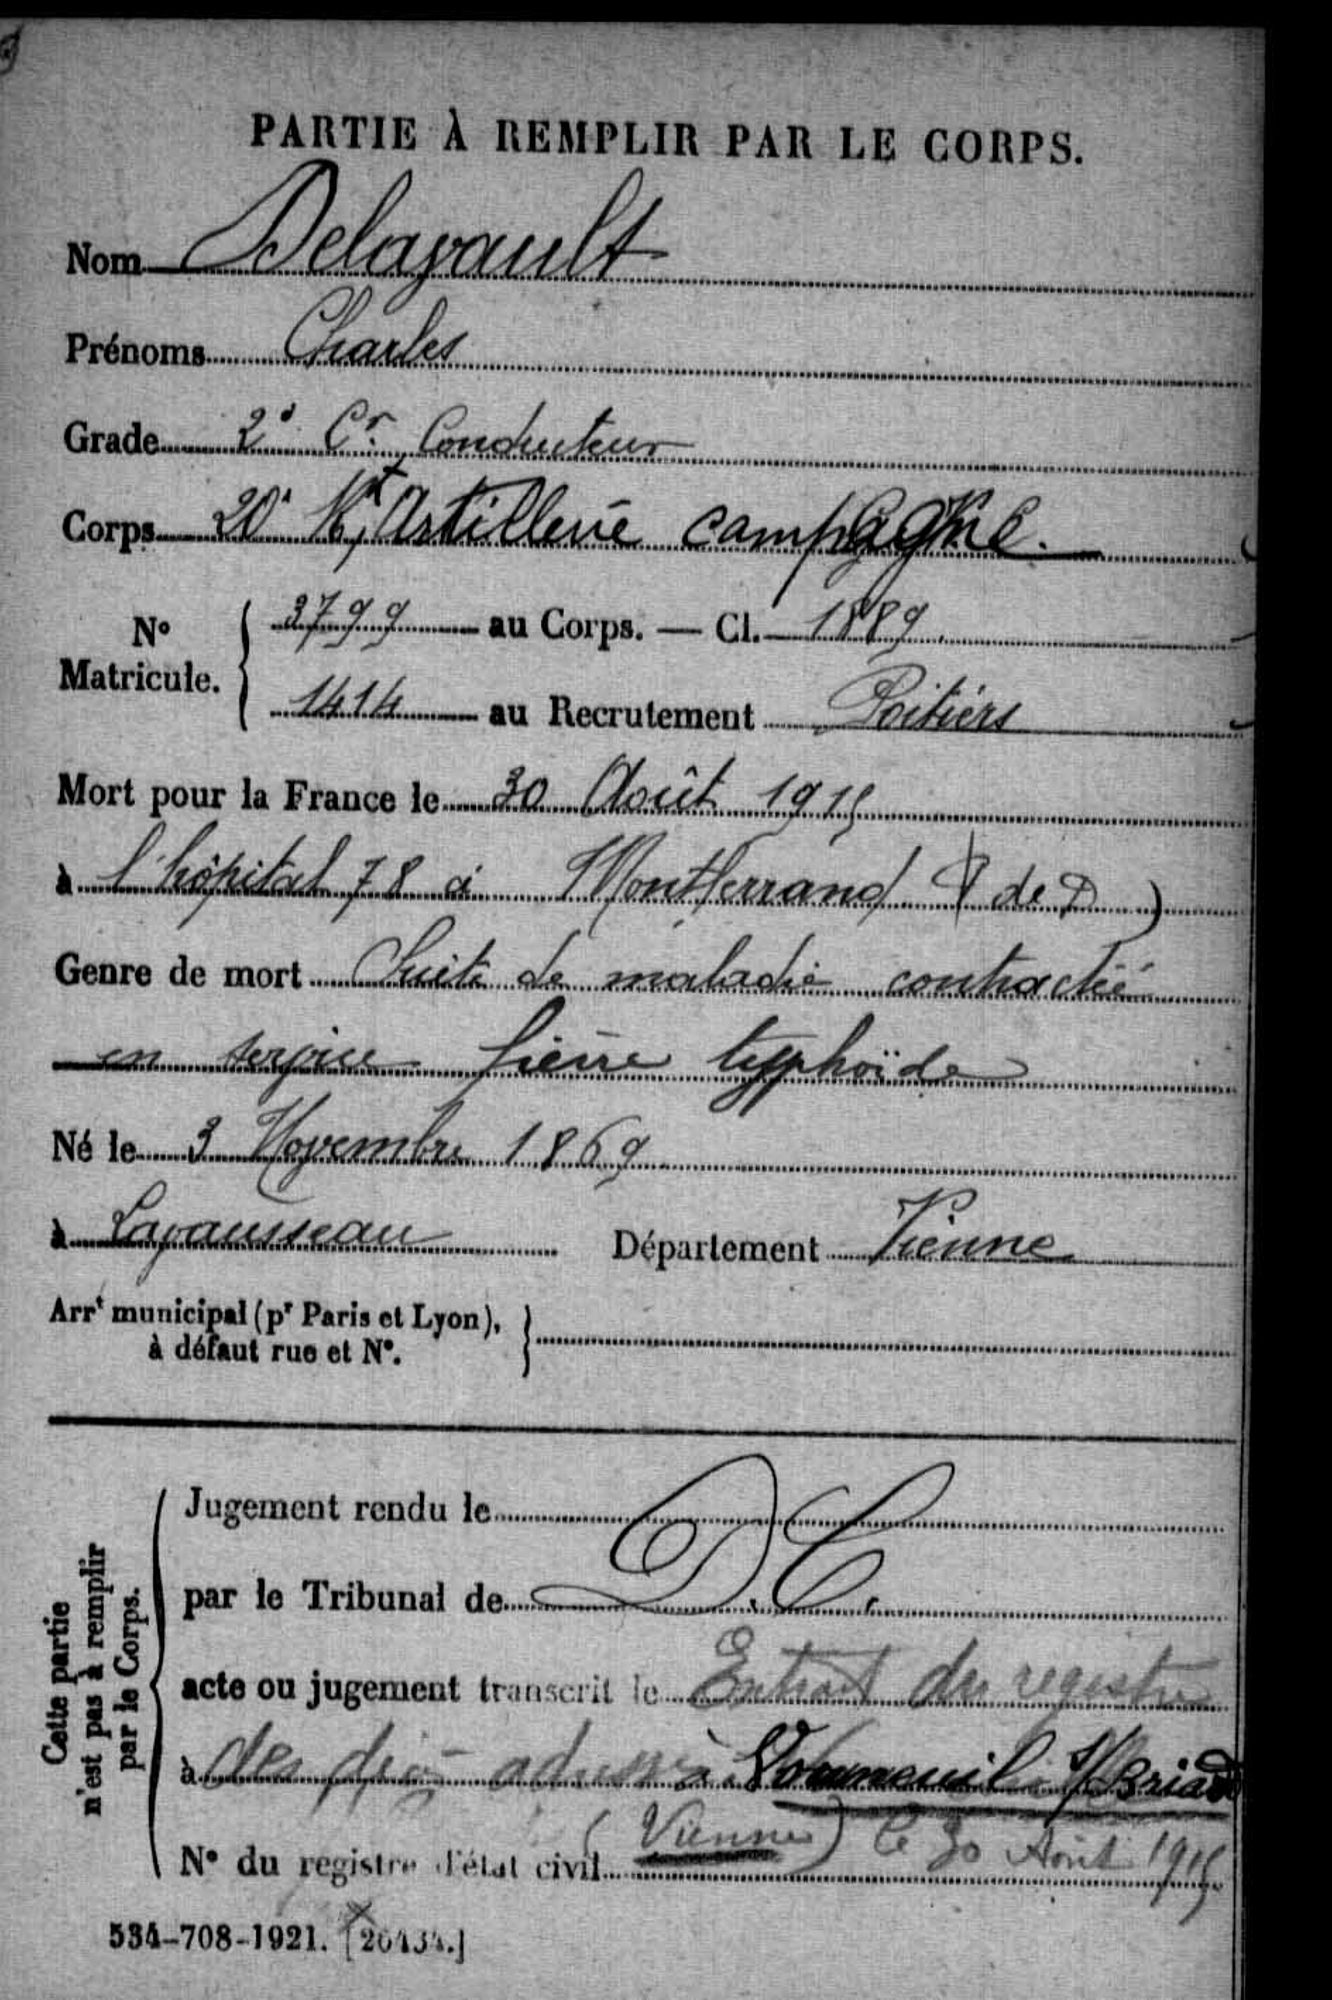 PARTIE À REMPLIR PAR LE CORPS.
Nom Delavault
Prénoms Charles
Grade 2e Cr Conducteur
Corps 20e Rt Artillerie campagne.
No Matricule. { 3799 au Corps. — Cl. 1889.
1414 au Recrutement Poitiers
Mort pour la France le 30 Août 1915
à l'hôpital 78 à Montferrand P de D)
Genre de mort Suite de maladie contractée
en service fièvre typhoïde
Né le 3 Novembre 1869
à Lavausseau Département Vienne
Arrt municipal (pr Paris et Lyon), à défaut rue et No. }
Cette partie n'est pas à remplir par le Corps.
Jugement rendu le
par le Tribunal de D.C.
acte ou jugement transcrit le Extrait du registre
à des décès adressé à Vouneuil s/Briard
No du registre d'état civil (Vienne) le 30 Août 1915.
534-708-1921. [26434.]